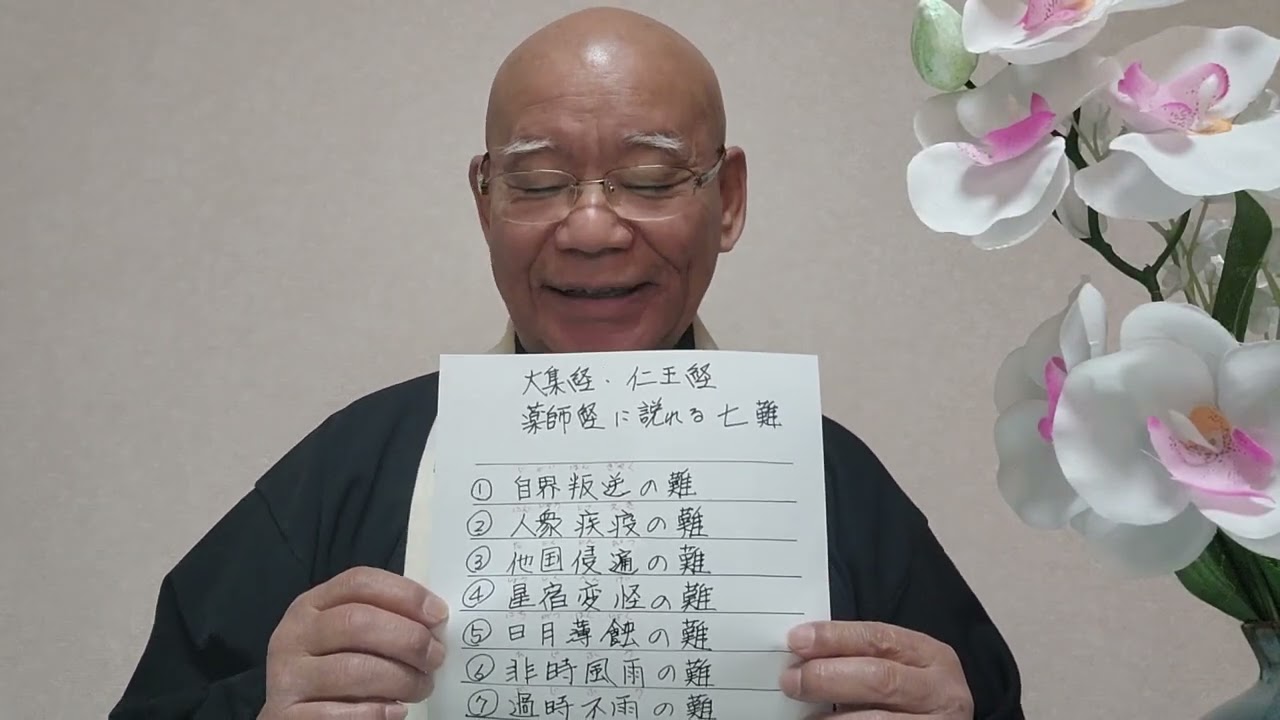 大集経・仁王経
薬師経に説れる七難
① 自界叛逆の難
② 人衆疾疫の難
③ 他国侵逼の難
④ 星宿変怪の難
⑤ 日月薄蝕の難
⑥ 非時風雨の難
⑦ 過時不雨の難